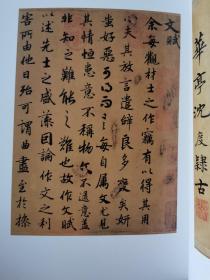 華亭沈度隸古
文賦
余每觀材士之作竊有以得其用
心夫其放言遣辭良多變矣妍
蚩好惡可得而言每自屬文尤見
其情恒患意不稱物文不逮意蓋
非知之難能之難也故作文賦
以述先士之盛藻因論作文之利
害所由他日殆可謂曲盡至於操